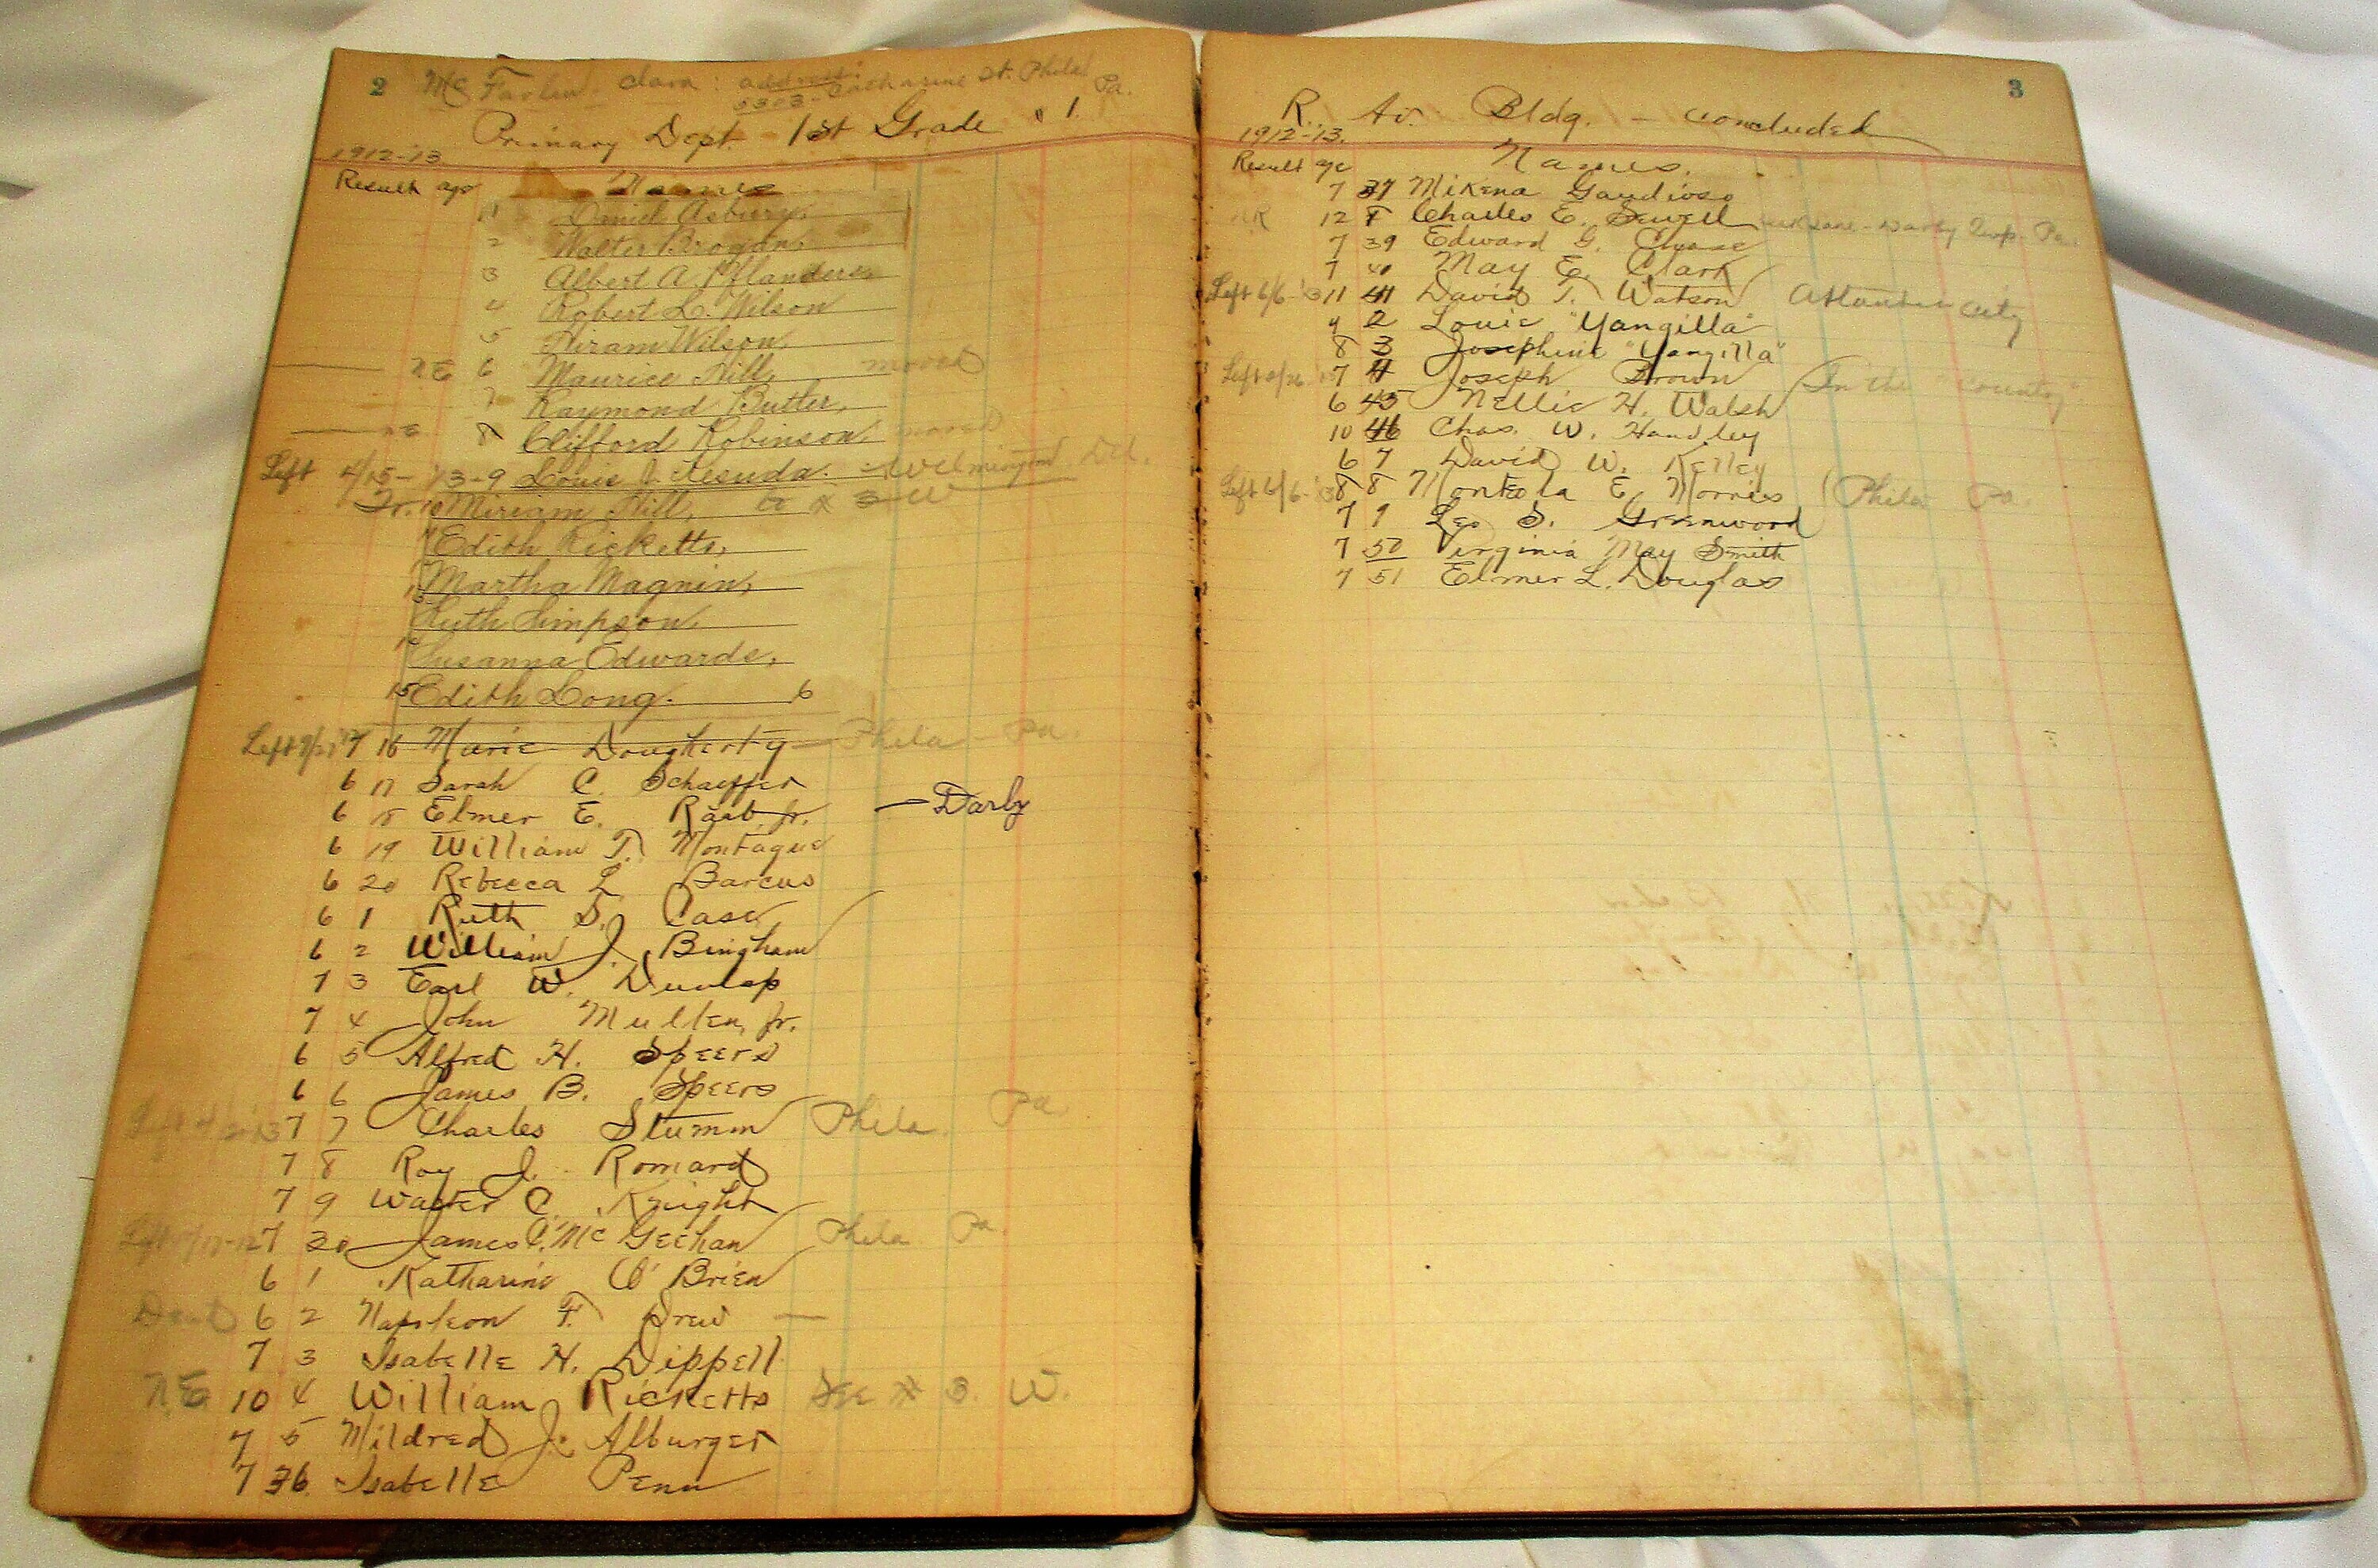 2 Mc Farlin, Clara : address:
5303 - Catharine St. Phila Pa.
Primary Dept. - 1st Grade # 1.
1912-13.
Result age Names
11 Daniel Asbury,
2 Walter Brogan,
3 Albert A. Pflanders,
4 Robert L. Wilson
5 Hiram Wilson,
N E 6 Maurice Hill, moved
7 Raymond Butler,
N E 8 Clifford Robinson, moved
Left 4/15-13-9 Louis J. - Wilmington, Del.
Tr. 10 Miriam Hill, # 3 W
Edith Ricketts,
Martha Magnin,
Ruth Simpson,
Susanna Edwards,
15 Edith Long. 6
Left 7 16 Marie Dougherty - Phila - Pa.
6 17 Sarah C. Schaeffer
6 8 Elmer E. Raab, Jr. - Darby
6 19 William T. Montague
6 20 Rebecca L Barcus
6 1 Ruth S. Case
6 2 William J. Bingham
7 3 Earl W. Dunlap
7 4 John Mullen, Jr.
6 5 Alfred H. Speers
6 6 James B. Speers
Left 7 7 Charles Stumm Phila. Pa
7 8 Roy J. Romard
7 9 Walter C. Knight
Left 7 30 James C. Mc Geehan Phila Pa.
6 1 Katharine O'Brien
Dead 6 2 Napoleon F. Drew -
7 3 Isabelle H. Dippell
N.E 10 4 William Ricketts See # 3. W.
7 5 Mildred J. Alburger
7 36. Isabelle Penn
3
R. Av. Bldg. - concluded
1912-13.
Result age Names.
7 37 Mikena Gaudioso
12 8 Charles E. Sewell Darby Twp. Pa.
7 39 Edward G. Chase
7 40 May E. Clark
Left 6/6-13 11 41 David T. Watson Atlantic City
9 2 Louie "Yangilla"
8 3 Josephine "Yangilla"
Left 7 4 Joseph Brown In the "country"
6 45 Nellie H. Walsh
10 46 Chas. W. Handley
6 7 David W. Kelley
Left 6/6-13 8 8 Monteola E. Morris (Phila Pa.
7 9 Leo S. Greenwood
7 50 Virginia May Smith
7 51 Elmer L. Douglas